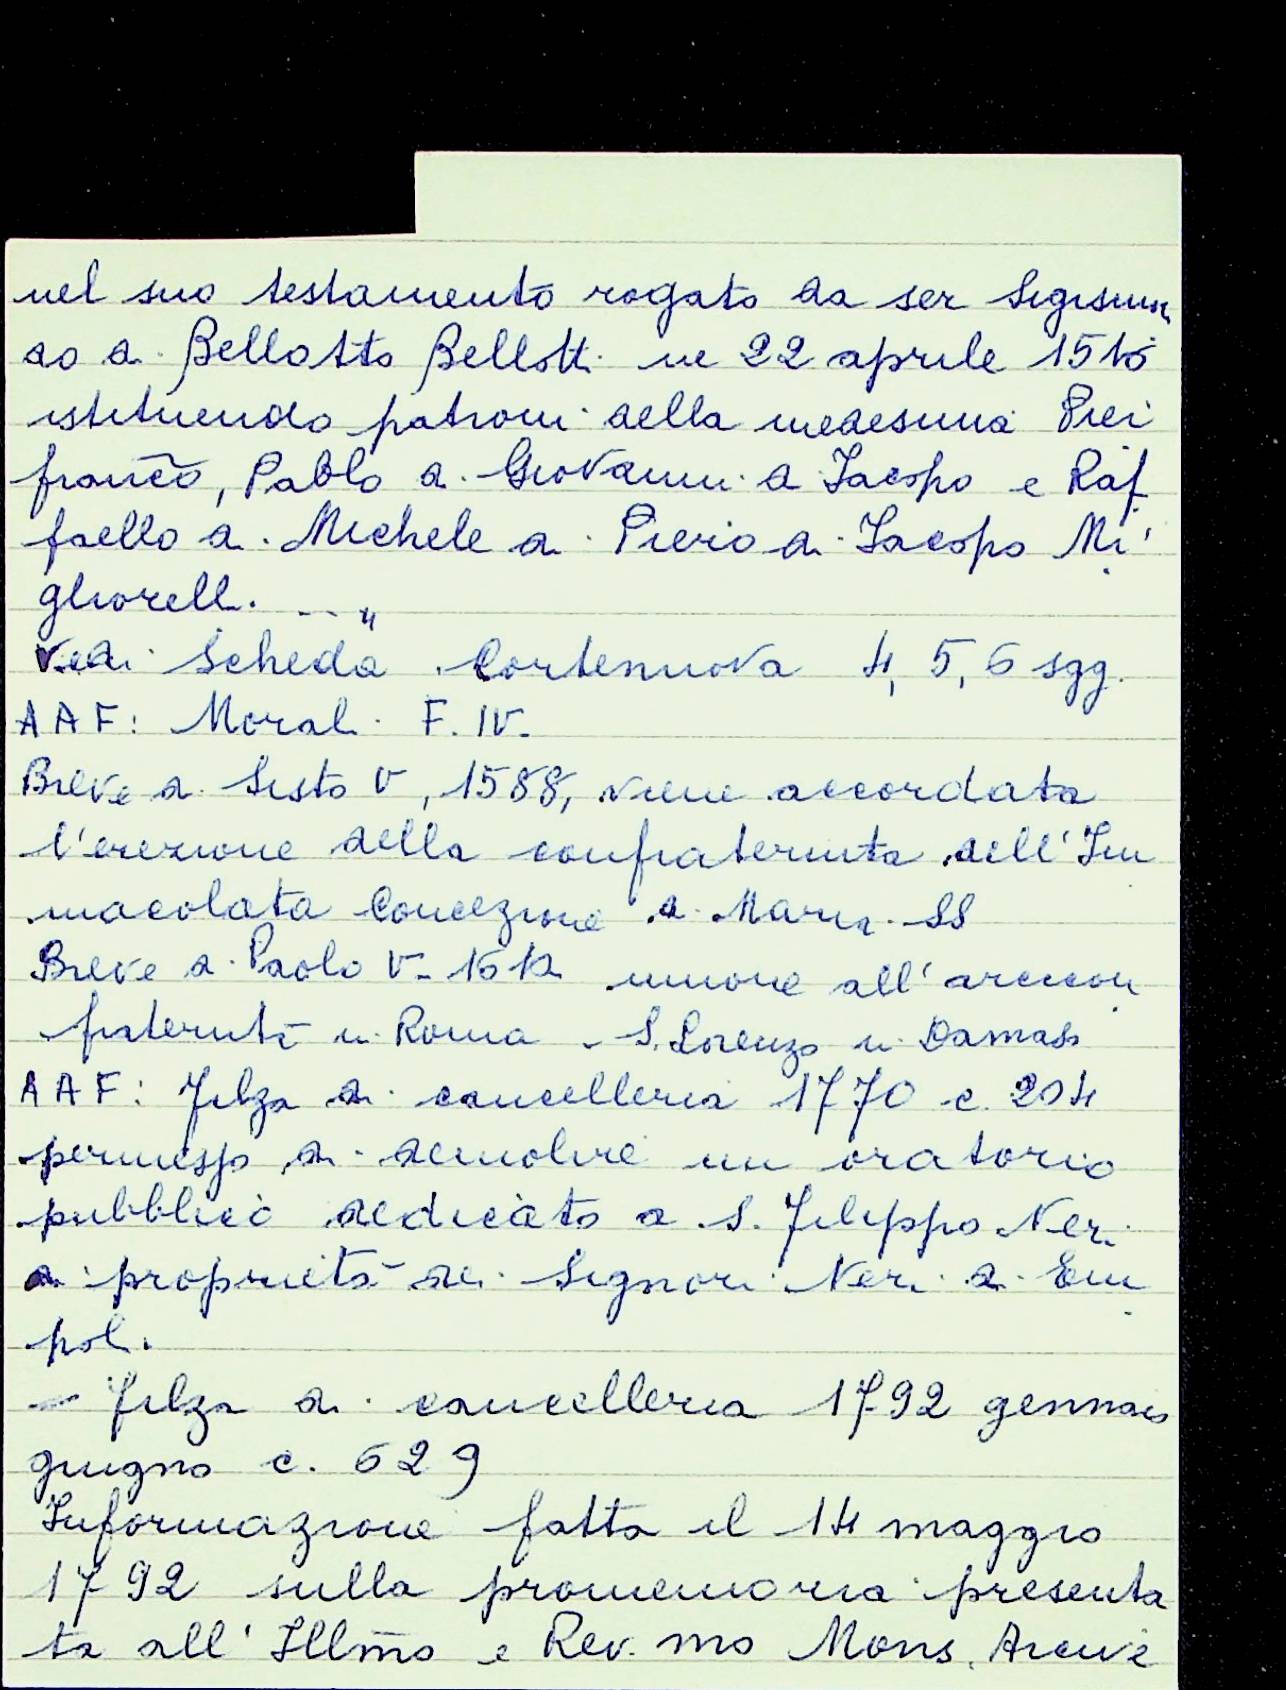 nel suo testamento rogato da ser Sigismon
do di Bellotto Bellotti ne 22 aprile 1516
istituendo patroni della medesima Pier
franco, Pablo di Giovanni di Jacopo e Raf
faello di Michele di Piero di Jacopo Mi
gliorelli. --"
Vedi scheda Cortenuova 4, 5, 6 sgg.
AAF: Morali F. IV.
Breve di Sisto V, 1588, viene accordata
l'erezione della confraternita dell'Im
macolata Concezione di Maria SS
Breve di Paolo V - 1612 unione all'arcicon
fraternità in Roma - S. Lorenzo in Damaso
AAF: Filza di cancelleria 1770 c. 204
permesso di demolire un oratorio
pubblico dedicato a S. Filippo Neri
di proprietà dei Signori Neri di Em
poli.
- Filza di cancelleria 1792 gennaio
giugno c. 629
Informazione fatta il 14 maggio
1792 sulla promemoria presenta
ta all'Illmo e Rev.mo Mons. Arcive